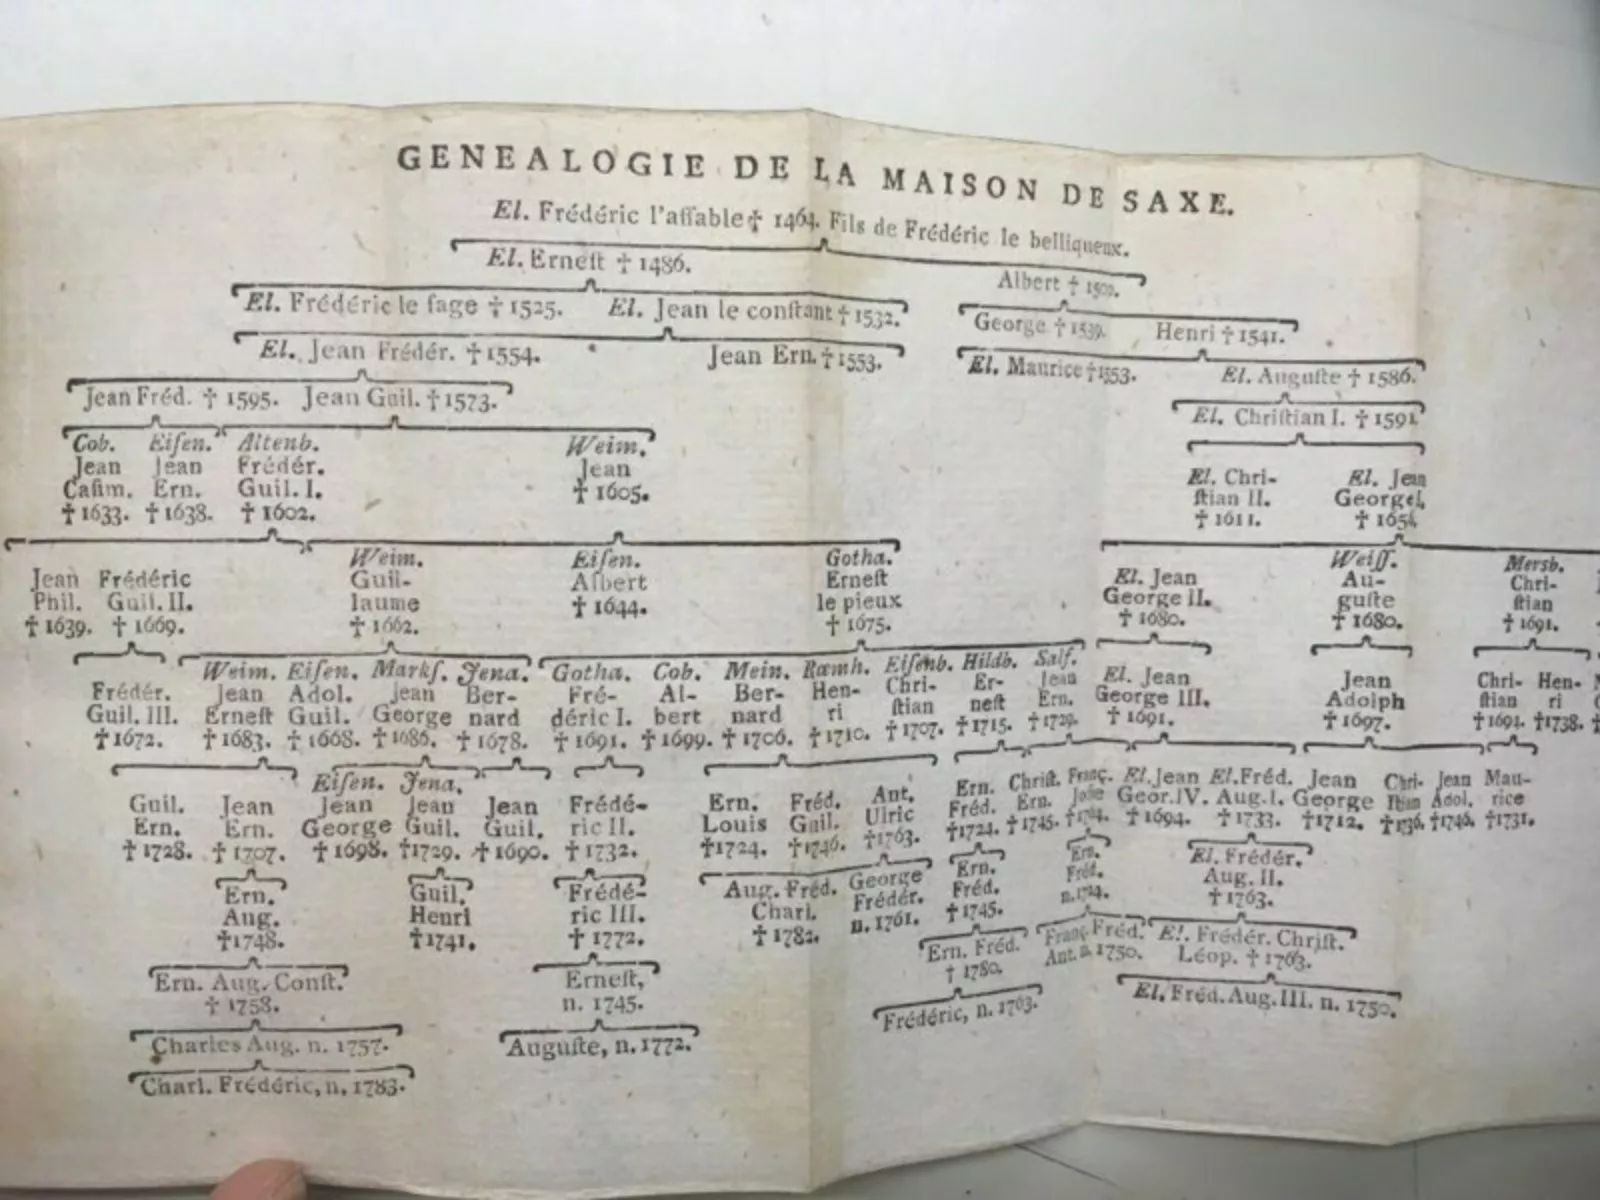 GENEALOGIE DE LA MAISON DE SAXE.
El. Frédéric l'affable † 1464. Fils de Frédéric le belliqueux.
El. Erneſt † 1486. Albert † 1500.
El. Frédéric le ſage † 1525. El. Jean le conſtant † 1532. George † 1539. Henri † 1541.
El. Jean Frédér. † 1554. Jean Ern. † 1553. El. Maurice † 1553. El. Auguſte † 1586.
Jean Fréd. † 1595. Jean Guil. † 1573. El. Chriſtian I. † 1591
Cob. Eiſen. Altenb. Weim.
Jean Jean Frédér. Jean El. Chri- El. Jean
Caſim. Ern. Guil. I. † 1605. ſtian II. George I.
† 1633. † 1638. † 1602. † 1611. † 1656.
Weim. Eiſen. Gotha. Weiſſ. Mersb.
Jean Frédéric Guil- Albert Erneſt El. Jean Au- Chri-
Phil. Guil. II. laume † 1644. le pieux George II. guſte ſtian
† 1639. † 1669. † 1662. † 1675. † 1680. † 1680. † 1691.
Weim. Eiſen. Markſ. Jena. Gotha. Cob. Mein. Rœmh. Eiſenb. Hildb. Salf.
Frédér. Jean Adol. Jean Ber- Fré- Al- Ber- Hen- Chri- Er- Jean El. Jean Jean Chri- Hen-
Guil. III. Erneſt Guil. George nard déric I. bert nard ri ſtian neſt Ern. George III. Adolph ſtian ri
† 1672. † 1683. † 1668. † 1686. † 1678. † 1691. † 1699. † 1706. † 1710. † 1707. † 1715. † 1729. † 1691. † 1697. † 1694. † 1738.
Eiſen. Jena.
Guil. Jean Jean Jean Jean Frédé- Ern. Fréd. Ant. Ern. Chriſt. Franç. El. Jean El. Fréd. Jean Chri- Jean Mau-
Ern. Ern. George Guil. Guil. ric II. Louis Guil. Ulric Fréd. Ern. Joſie Geor. IV. Aug. I. George ſtian Adol. rice
† 1728. † 1707. † 1698. † 1729. † 1690. † 1732. † 1724. † 1746. † 1763. † 1724. † 1745. † 1764. † 1694. † 1733. † 1712. † 1736. † 1746. † 1731.
Ern. Guil. Frédé- Aug. Fréd. George Ern. Ern. El. Frédér.
Aug. Henri ric III. Charl. Frédér. Fréd. Fréd. Aug. II.
† 1748. † 1741. † 1772. † 1782. n. 1761. † 1745. n. 1724. † 1763.
Ern. Aug. Conſt. Erneſt, Ern. Fréd. Franç. Fréd. El. Frédér. Chriſt.
† 1758. n. 1745. † 1780. Ant. n. 1750. Léop. † 1763.
Charles Aug. n. 1757. Auguſte, n. 1772. Frédéric, n. 1763. El. Fréd. Aug. III. n. 1750.
Charl. Frédéric, n. 1783.